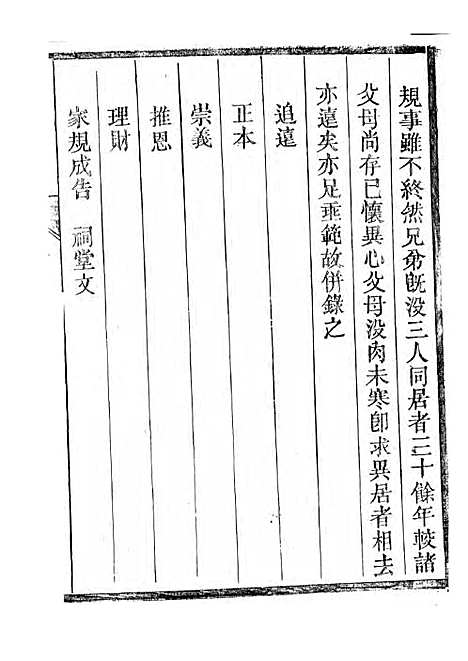 規事雖不終然兄弟既没三人同居者三十餘年較諸
父母尚存已懷異心父母没肉未寒即求異居者相去
亦遠矣亦足垂範故併錄之
追遠
正本
崇義
推恩
理財
家規成告 祠堂文